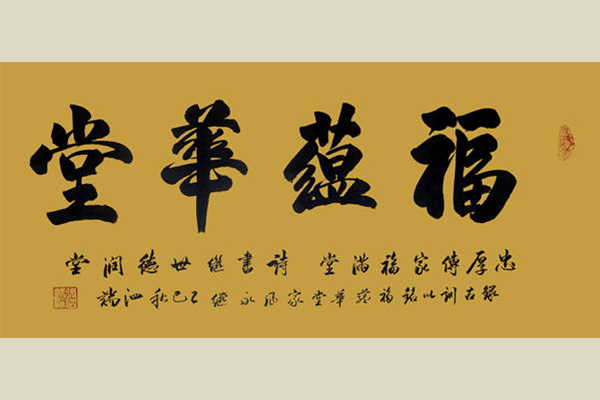 福蘊華堂
忠厚傳家福滿堂 詩書繼世德潤堂
錄古訓以銘福蘊華堂家風永繼 乙巳秋泗